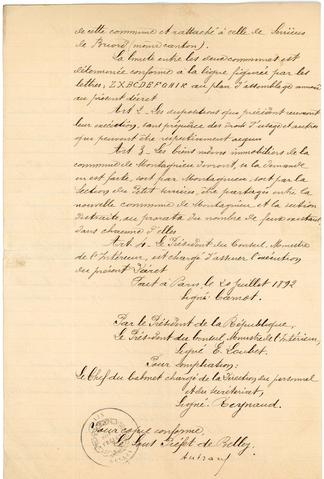 de cette commune et rattaché à celle de Serrières
de Briord (même canton).
La limite entre les deux communes est
déterminée conforme à la ligne figurée par les
lettres, ZXBCDEFGHIK au plan d'assemblage annexé
au présent décret
Art 2 - Les dispositions qui précèdent recevront
leur exécution, sans préjudice des droits d'usage et autres
qui peuvent être respectivement acquis
Art 3 - Les biens immobiliers de la
commune de Montagnieu devront, si la demande
en est faite, soit par Montagnieu, soit par la
Section du Petit Serrières, être partagés entre la
nouvelle commune de Montagnieu et la section
distraite, au prorata du nombre de feux existant
dans chacune d'elles
Art 4 - Le Président du Conseil, Ministre
de l'Intérieur, est chargé d'assurer l'exécution
du présent Décret
Fait à Paris le 20 juillet 1892
Signé Carnot.
Par le Président de la République,
Le Président du Conseil, Ministre de l'Intérieur,
Signé E. Loubet
Pour ampliation:
Le Chef du Cabinet chargé de la Direction du personnel
et du secrétariat,
Signé: Reynaud.
Pour copie conforme,
Le Sous Préfet de Belley